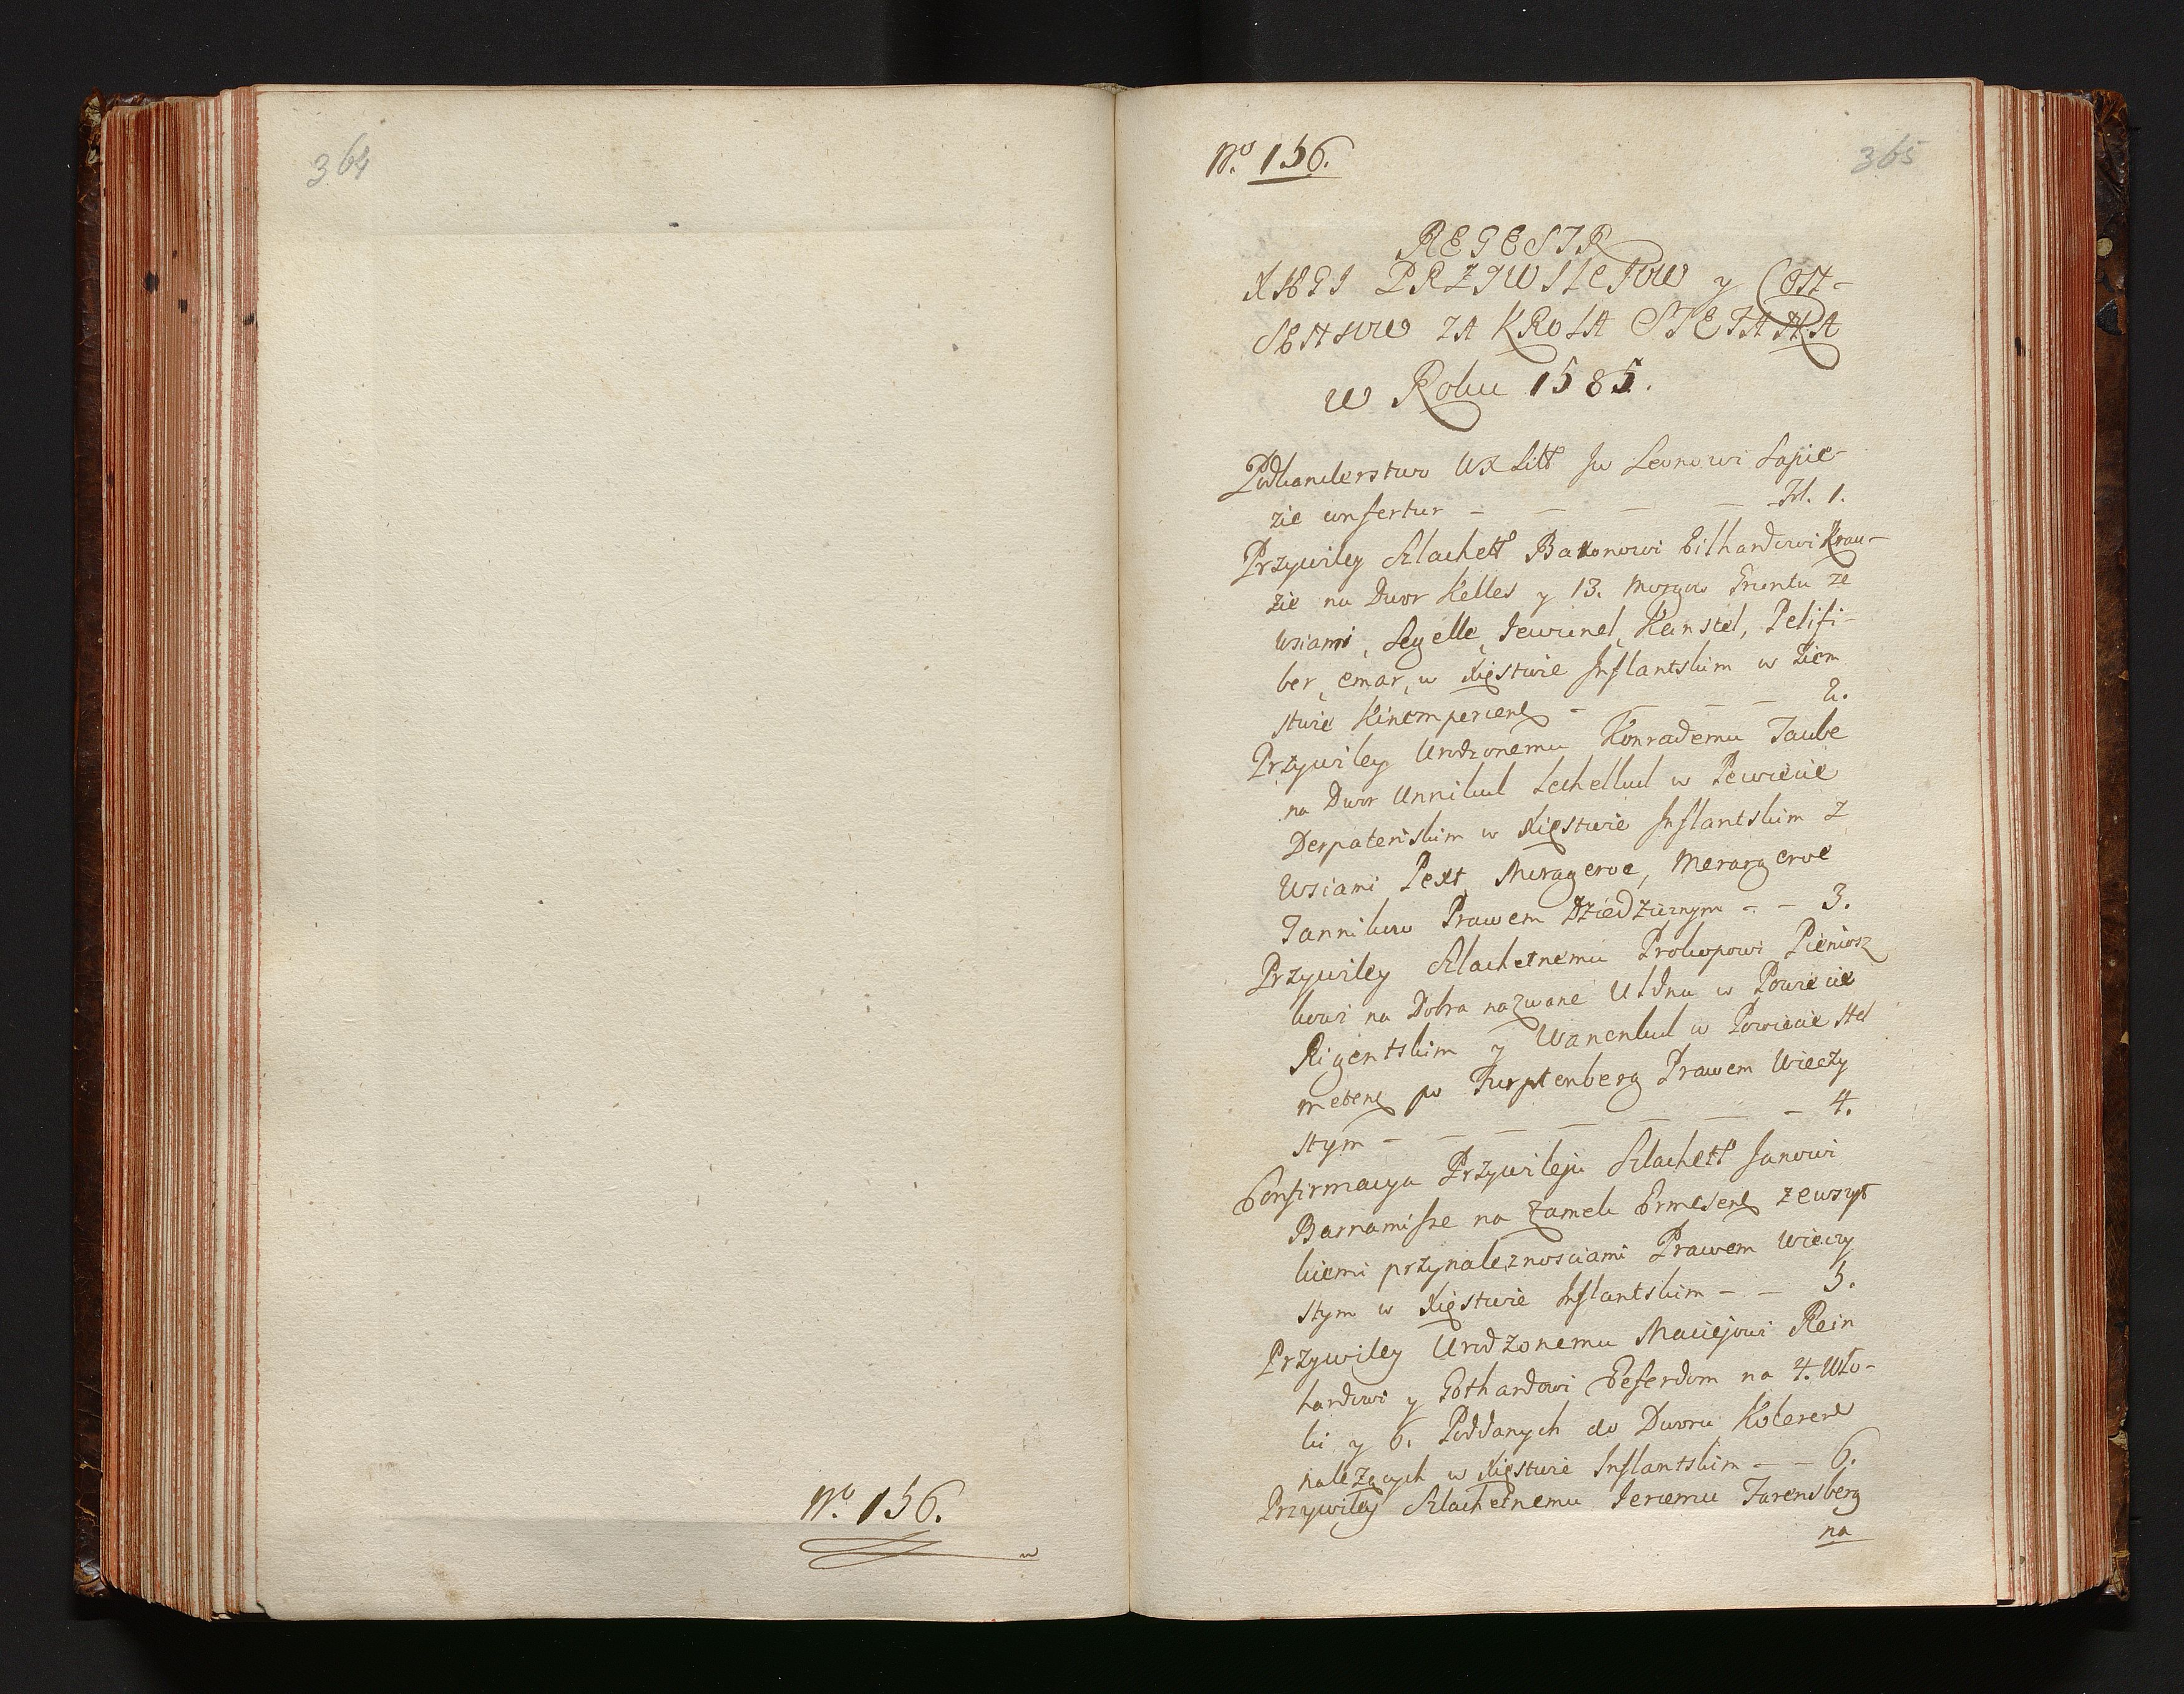 364
No. 156.
No. 156.
365
REGESTR
XIĘGI PRZYWILEJOW y CON-
SENSOW ZA KROLA STEFANA
w Roku 1585.
Podkanclerstwo WX Litt Jw Leonowi Sapie-
zie confertur - - - - Fol. 1.
Przywiley Szlachett Baronowi Eilhardowi Krau-
zie na Dwor Kelles y 13. morgow Gruntu ze
wsiami, Segelle, Jewinel, Kanstel, Pelifi-
ber, emar, w Xięstwie Inflantskim w Ziem
stwie Kinempeiens - - - - 2.
Przywiley Urodzonemu Konrademu Taube
na Dwor Unnikul Lechelkul w Powiecie
Derpatenskim w Xięstwie Inflantskim z
wsiami Pext, Muragerve, Merargerve
Jannikuw Prawem Dziedzicznym - - 3.
Przywiley Szlachetnemu Prokopowi Pieniosz
kowi na Dobra nazwane Uldnu w Powiecie
Rigentskim y Wanenkul w Powiecie Hel
metens po Furstenberg Prawem Wieczy
stym - - - - - - - 4.
Confirmacya Przywileju Szlachett Janowi
Barnamisze na Zamek Ermesens zewszyt
kiemi przynaleznosciami Prawem Wieczy
stym w Xięstwie Inflantskim - - 5.
Przywiley Urodzonemu Maciejowi Rein
hardowi y Gothardowi Feferdom na 4. Wło-
ki y 6. Poddanych do Dworu Kolerens
należących w Xięstwie Inflantskim - - 6.
Przywiley Szlachetnemu Jeremu Farensberg
na